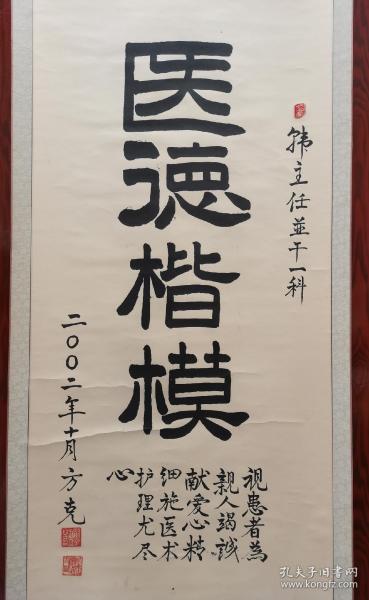 韩主任並干一科
医德楷模
視患者為
親人竭誠
献爱心精
细施医术
护理尤尽
心
二〇〇二年十月方克
孔夫子旧书网
www.kongfz.com